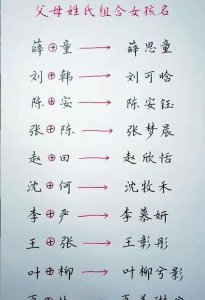 父母姓氏组合女孩名
薛⊕童→薛思童
刘⊕韩→刘可晗
陈⊕安→陈安钰
张⊕陈→张梦晨
赵⊕田→赵欣恬
沈⊕何→沈牧禾
李⊕严→李慕妍
王⊕张→王彰彤
叶⊕柳→叶柳兮影